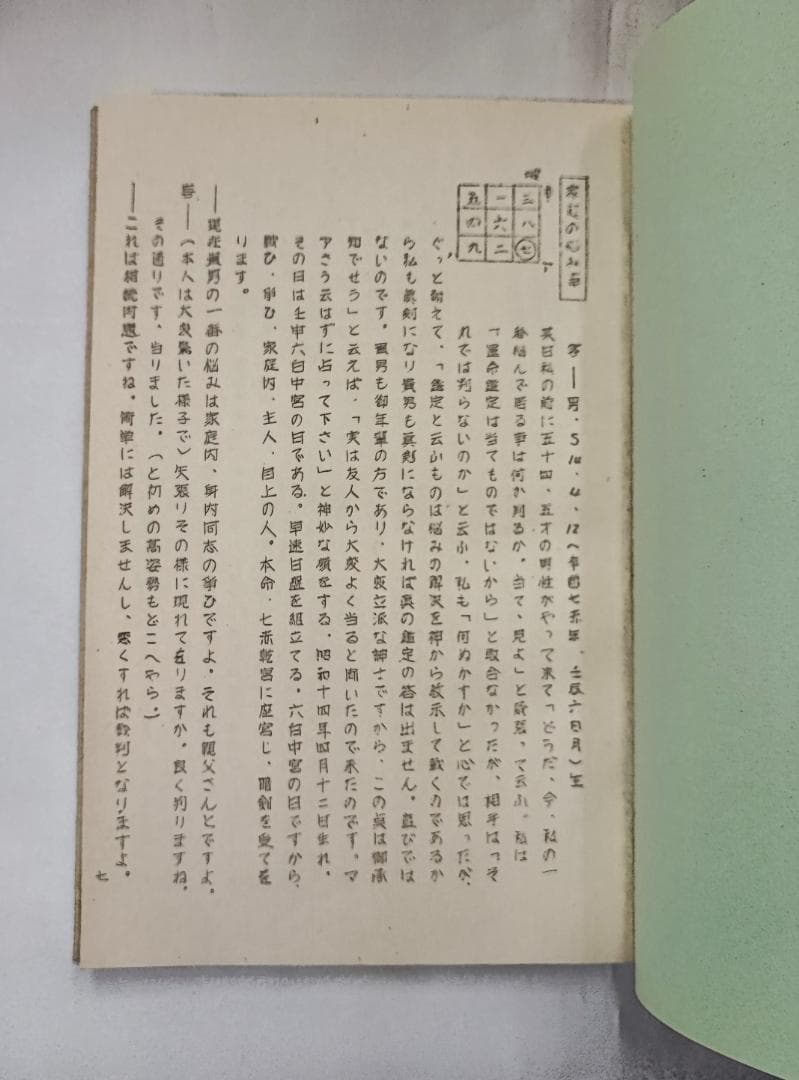 家庭の悩み
三 八 七
一 六 二
五 四 九
答―男、S14、4、12
某日私の前に五十四、五才の男性がやって来て「どうだ、今、私の一
番悩んで居る事は何か判るか。当て、見よ」と って云ふ。私は
「運命鑑定は当てものではないから」と取合なかったが、相手は「そ
れでは判らないのか」と云ふ、私も「何ぬかすか」と心では思ったが、
ぐっと耐えて、「鑑定と云ふものは悩みの解決を神から教示して戴くのであるか
ら私も真剣になり貴男も真剣にならなければ真の鑑定の答は出ません。遊びでは
ないのです。貴男も御年輩の方であり、大変立派な紳士ですから、この点は御承
知でせう」と云えば、「実は友人から大変よく当ると聞いたので来たのです。マ
アさう云はずに占って下さい」と神妙な顔をする、昭和十四年四月十二日生れ、
その日は壬申六白中宮の日である。早速日盤を組立てる。六白中宮の日ですから、
戦ひ、争ひ、家庭内、主人、目上の人。本命、七赤乾宮に座宮じ、暗剣を受て居
ります。
―現在貴男の一番の悩みは家庭内、身内同志の争ひですよ。それも親父さんとですよ。
答―(本人は大変驚いた様子で)矢張りその様に現れて在りますか。良く判りますね。
その通りです、当りました。(と初めの高姿勢もどこへやら。)
―これは相続問題ですね。簡単には解決しませんし、悪くすれば裁判となりますよ。
七